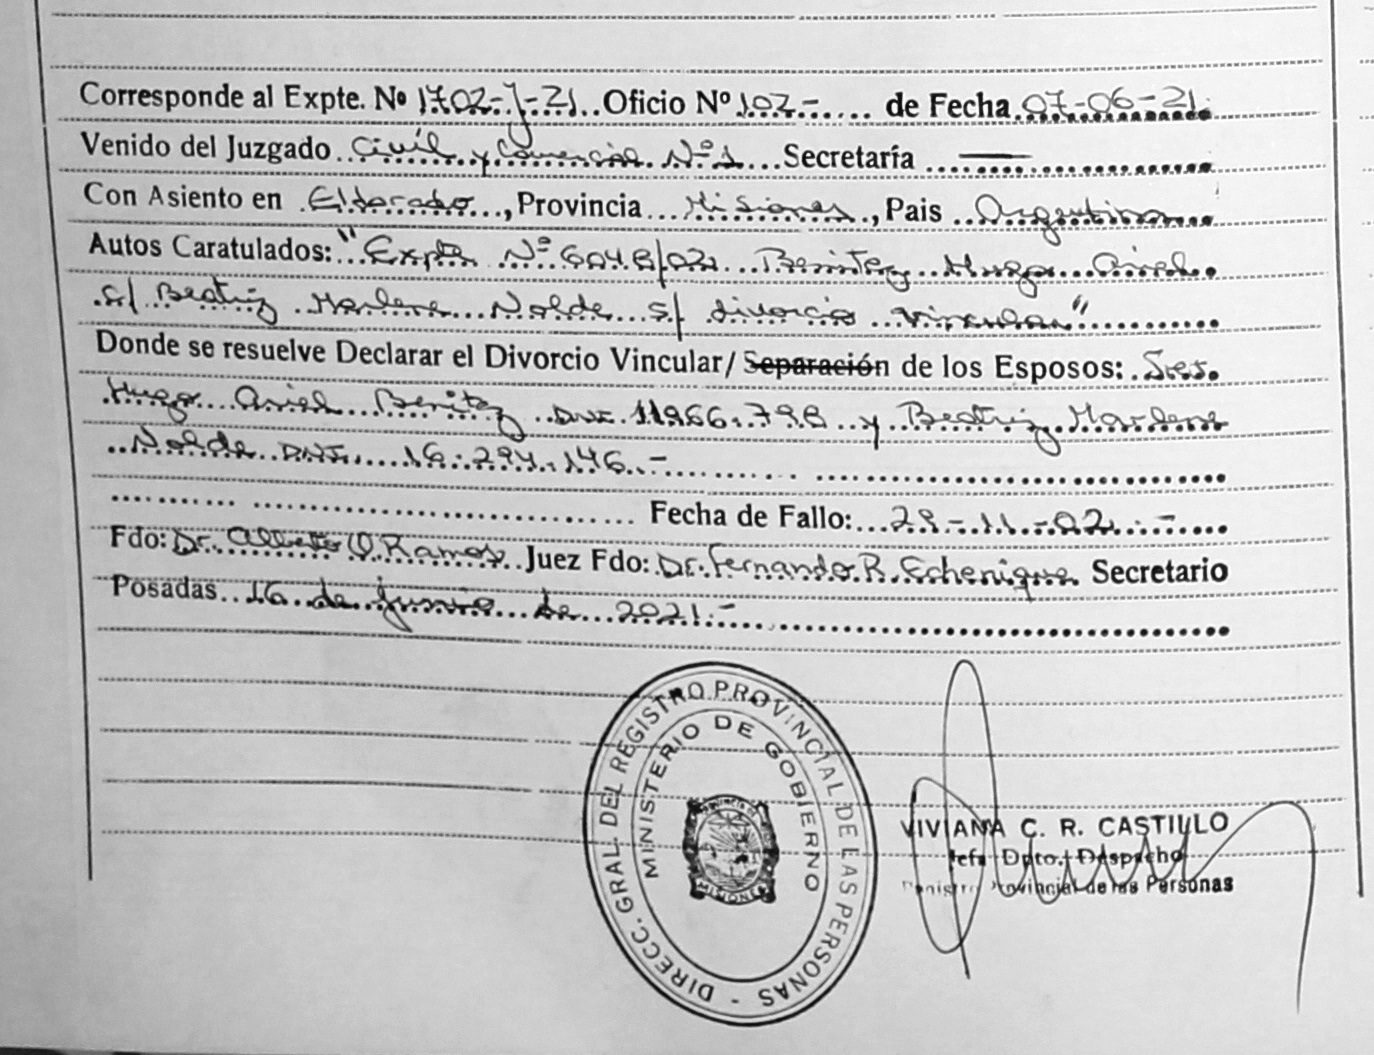 Corresponde al Expte. Nº 1702-J-21.. Oficio Nº 107-..... de Fecha 07-06-21.
Venido del Juzgado Civil y Comercial Nº 1 ... Secretaría —
Con Asiento en Eldorado ..., Provincia ... Misiones, Pais .. Argentina
Autos Caratulados: "Expte Nº 6048/02 Benitez Hugo Ariel
c/ Beatriz Marlene Nolde s/ divorcio vincular"
Donde se resuelve Declarar el Divorcio Vincular/ Separación de los Esposos: Sres.
Hugo Ariel Benitez DNI 11.966.798 y Beatriz Marlene
Nolde DNI 16.294.146.-
Fecha de Fallo: 28-11-02.-
Fdo: Dr. Alberto O Ramos Juez Fdo: Dr. Fernando R. Echenique Secretario
Posadas 16 de junio de 2021.-
DIRECC. GRAL. DEL REGISTRO PROVINCIAL DE LAS PERSONAS -
MINISTERIO DE GOBIERNO
PROVINCIA DE
MISIONES
VIVIANA C. R. CASTILLO
Jefa Dpto. Despacho
Registro Provincial de las Personas